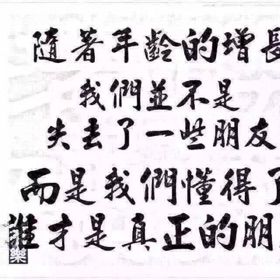 隨著年齡的增長
我們並不是
失去了一些朋友
而是我們懂得了
誰才是真正的朋
樂